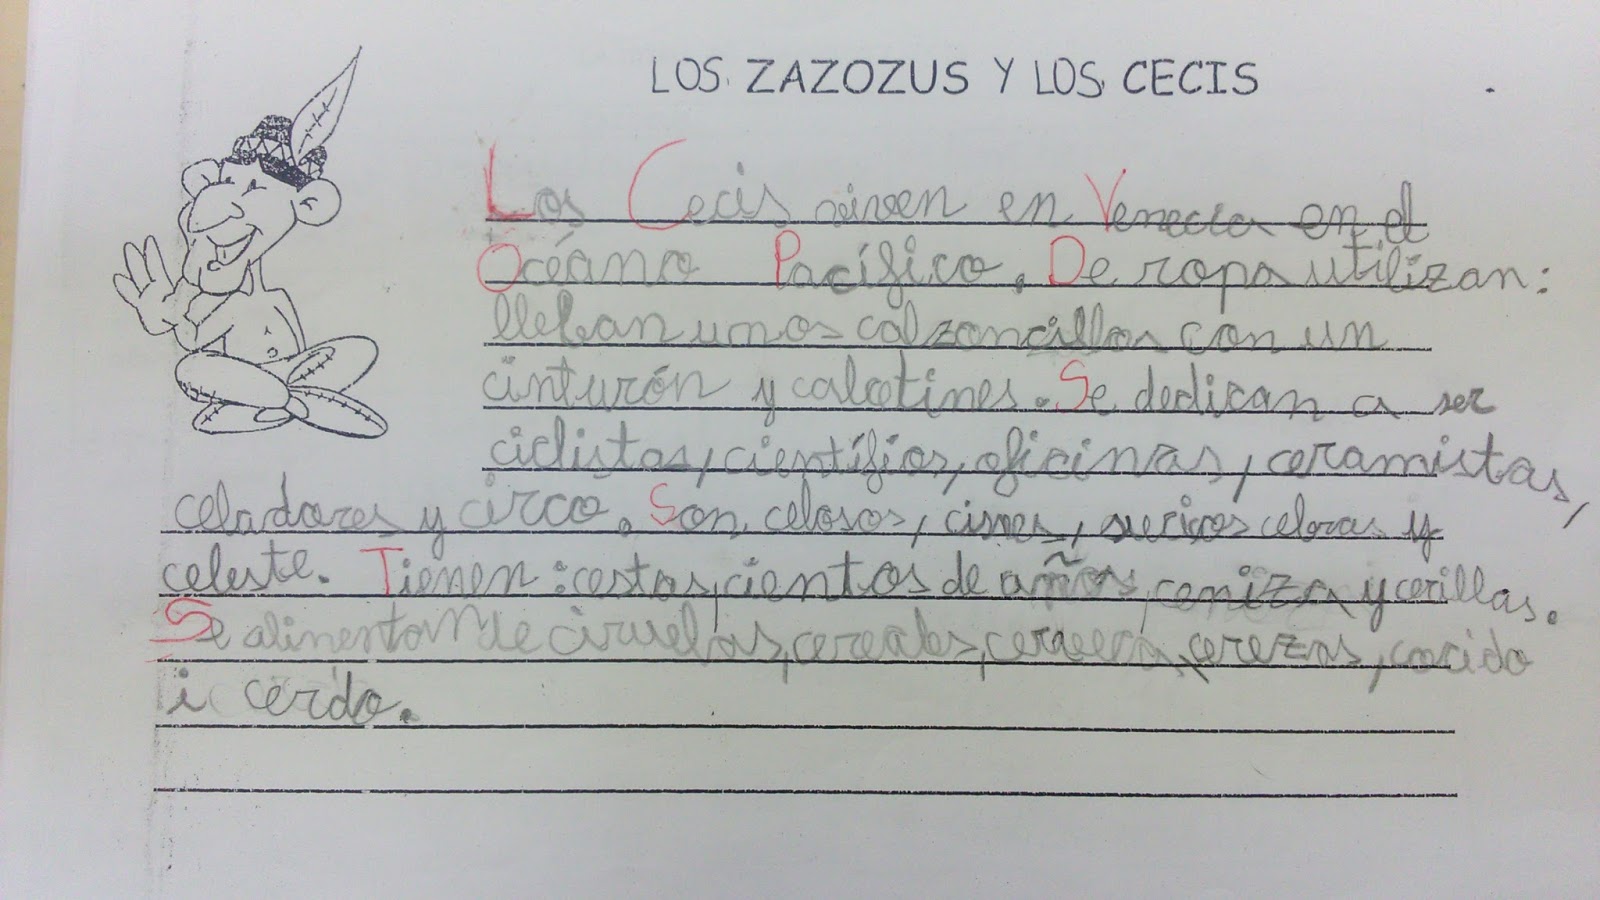 LOS ZAZOZUS Y LOS CECIS
Los Cecis viven en Venecia en el
Océano Pacífico. De ropa utilizan:
lleban unos calzoncillos con un
cinturón y calcetines. Se dedican a ser
ciclistas, científios, oficinas, ceramistas,
celadores y circo. Son celosos, cisnes, cebras y
celeste. Tienen: cestas, cientos de años, ceniza y cerillas.
Se alimentan de ciruelas, cereales, cerveera, cerezas, cocido
i cerdo.